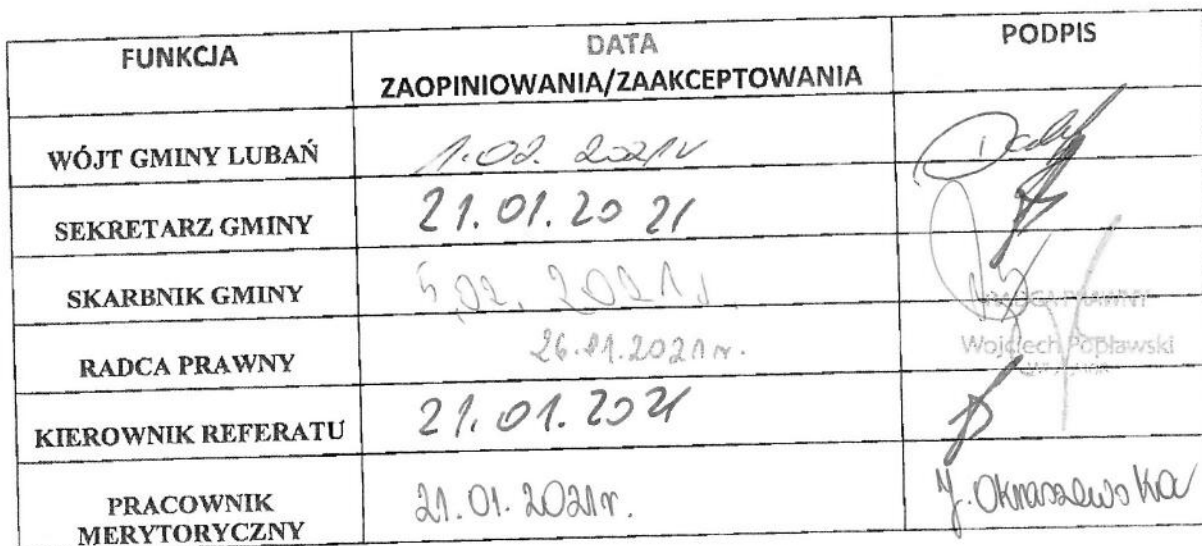 FUNKCJA
DATA
ZAOPINIOWANIA/ZAAKCEPTOWANIA
PODPIS
WÓJT GMINY LUBAŃ
1.02. 2021r
SEKRETARZ GMINY
21.01.2021
SKARBNIK GMINY
5.02.2021r.
RADCA PRAWNY
26.01.2021r.
RADCA PRAWNY
Wojciech Popławski
KIEROWNIK REFERATU
21.01.2021
PRACOWNIK
MERYTORYCZNY
21.01.2021r.
J. Oknaszewska